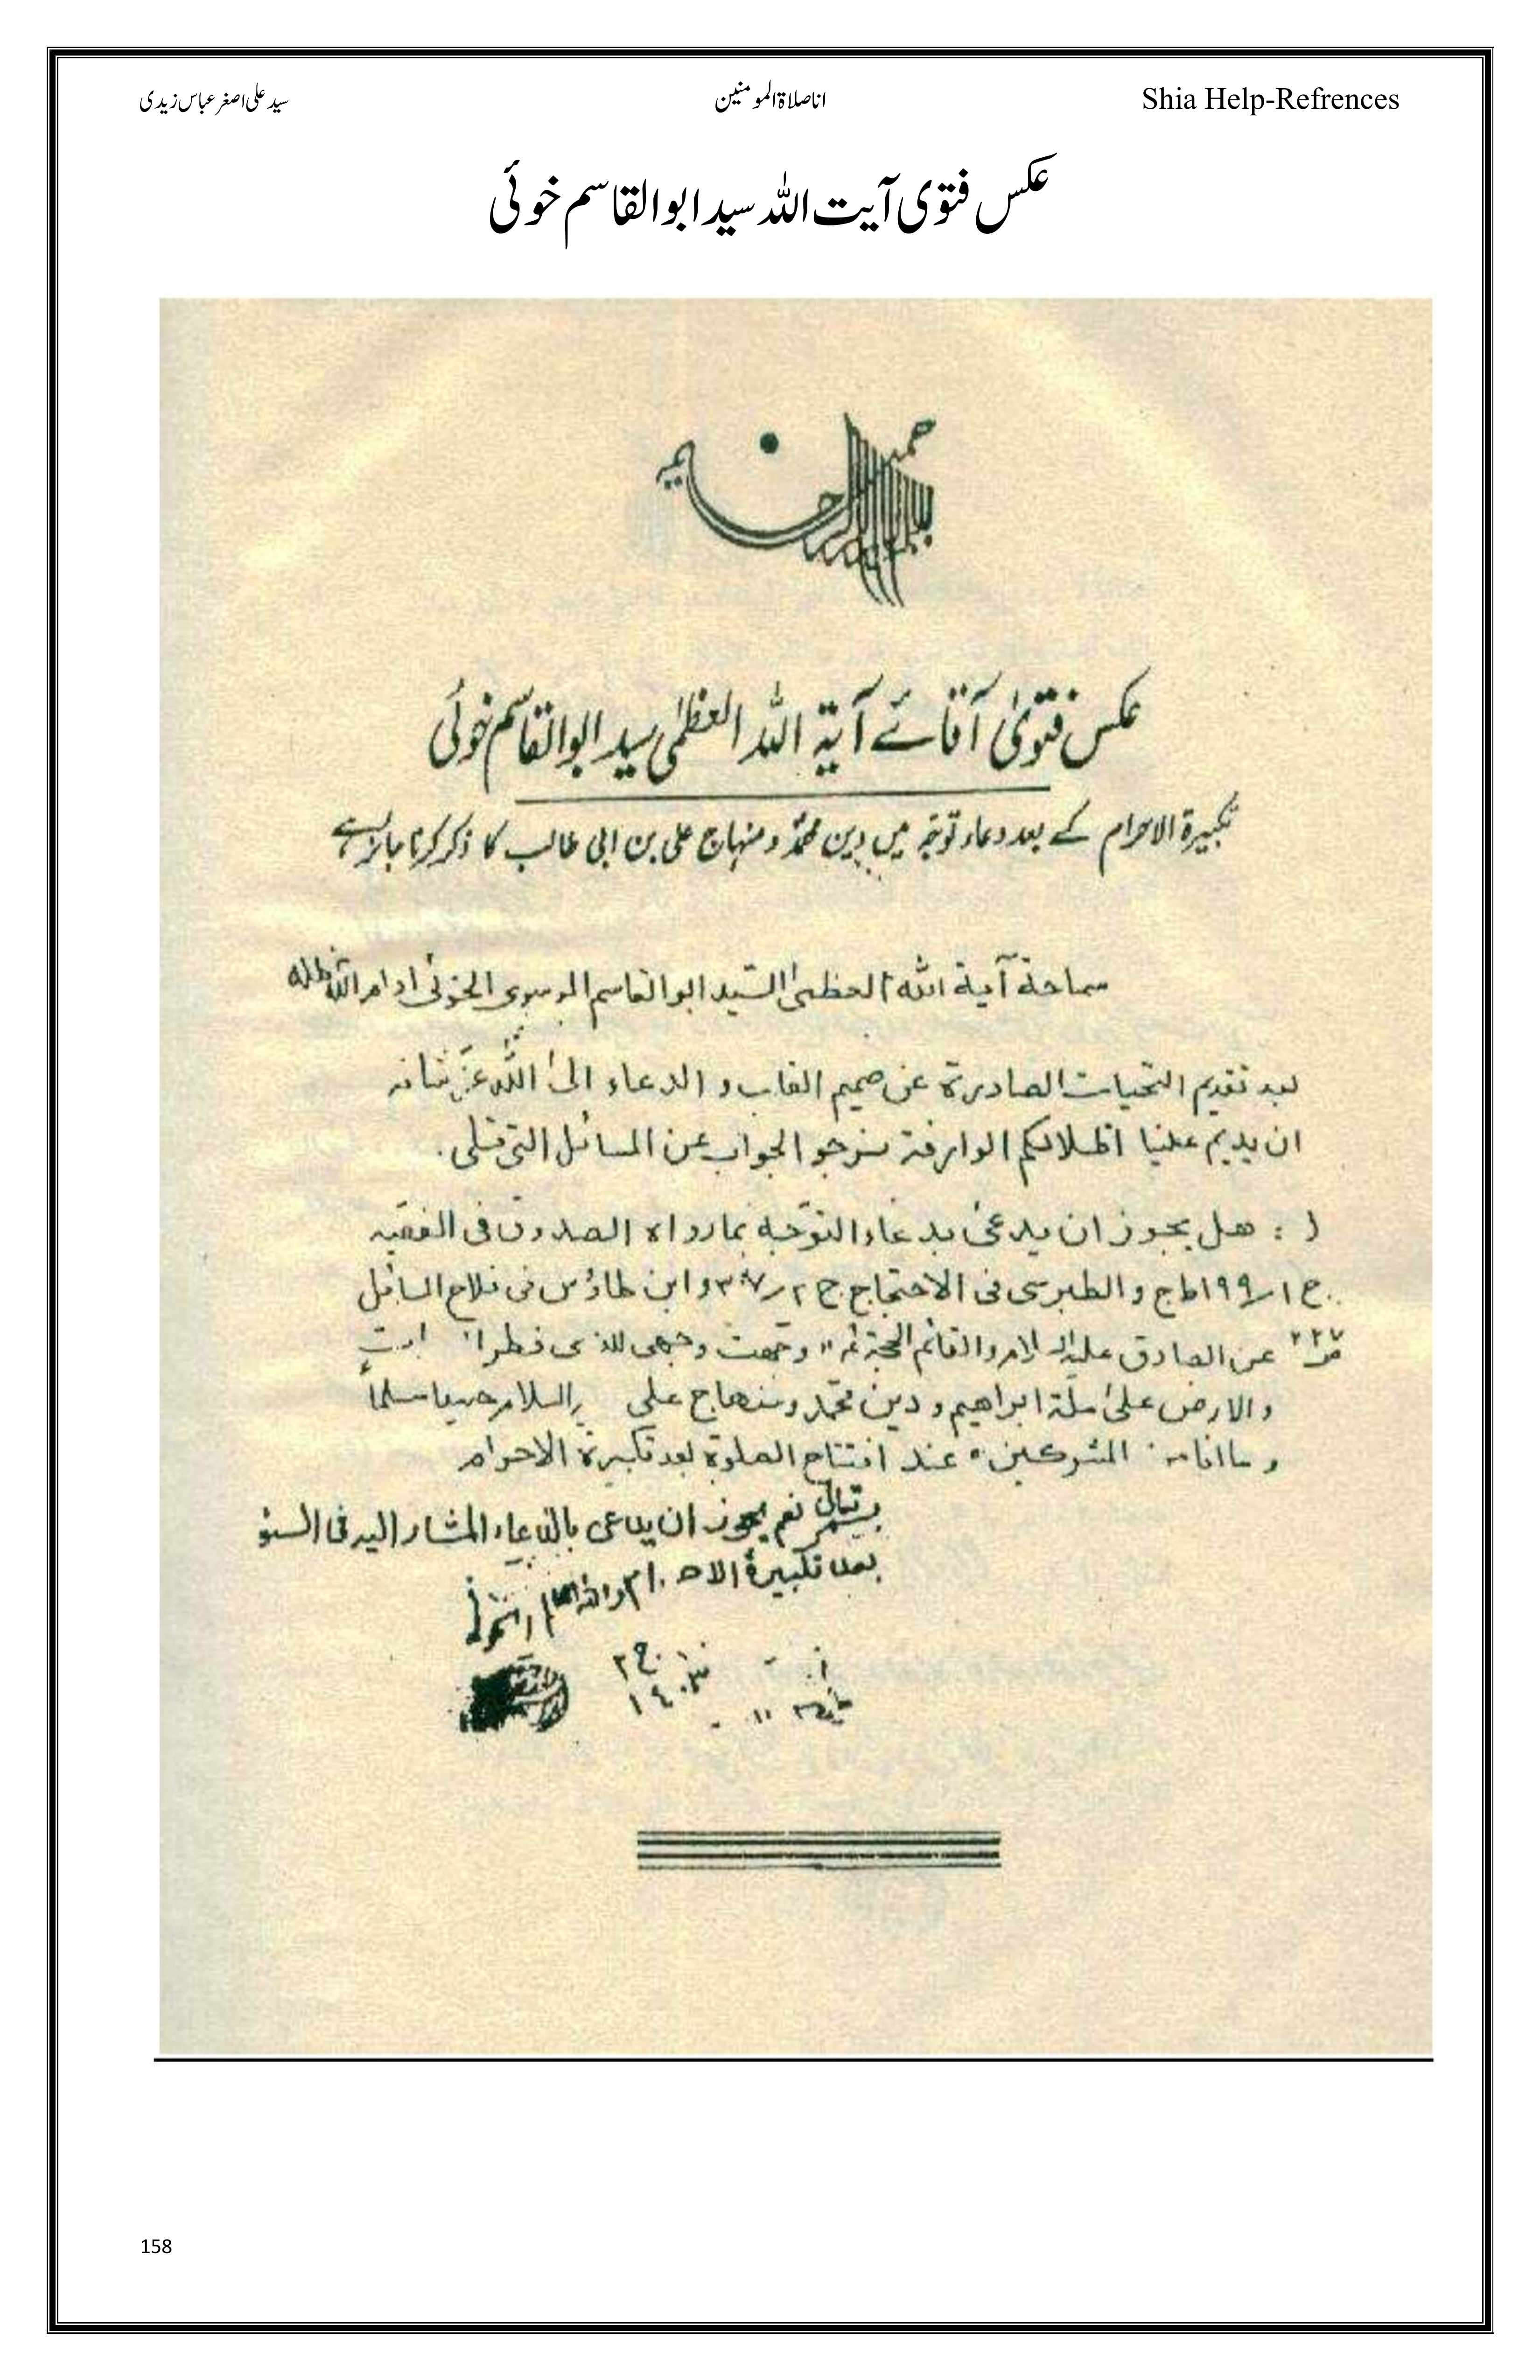 Shia Help-Refrences
اناصلاۃالمومنین
سید علی اصغر عباس زیدی
عکس فتوی آیت اللہ سید ابوالقاسم خوئی
عکس فتویٰ آقائے آیۃ اللہ العظمٰی سید ابوالقاسم خوئی
تکبیرۃ الاحرام کے بعد دعاء توجّہ میں دین محمدؐ و منہاج علی بن ابی طالب کا ذکر کرنا جائز ہے
سماحة آية الله العظمیٰ السّيد ابوالقاسم الموسوی الخوئی ادام الله ظله
بعد تقديم التحيات الصادرة عن صميم القلب و الدعاء الیٰ الله عزّ شانه
ان يديم علينا اظلالكم الوارفة نرجو الجواب عن المسائل التی تتلی.
١ : هل يجوز ان يدعیٰ بدعاء التوجّه بما رواه الصدوق فی الفقيه
ج ١ والطبرسی فی الاحتجاج ج ٢ و ابن طاؤس فی فلاح السائل
عن الصادق عليه السلام والقائم الحجة " وجّهت وجهی للذی فطر
والارض علیٰ ملّة ابراهيم و دين محمّد و منهاج علی حنيفا مسلماً
و ما انا من المشركين" عند افتتاح الصلوة بعد تكبيرة الاحرام
بسمه تعالی نعم يجوز ان يدعی بالدعاء المشار اليه فی السئو
بعد تكبيرة الاحرام والله العالم الخوئی
ج ٢
١٤٠٣
158